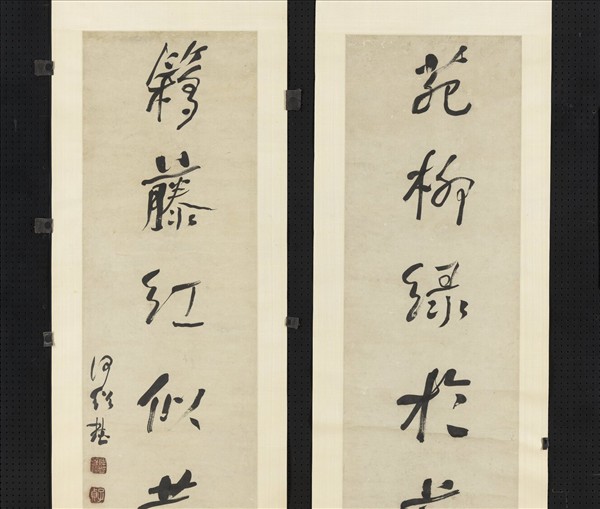 苑柳綠於
藤紅似
何紹基